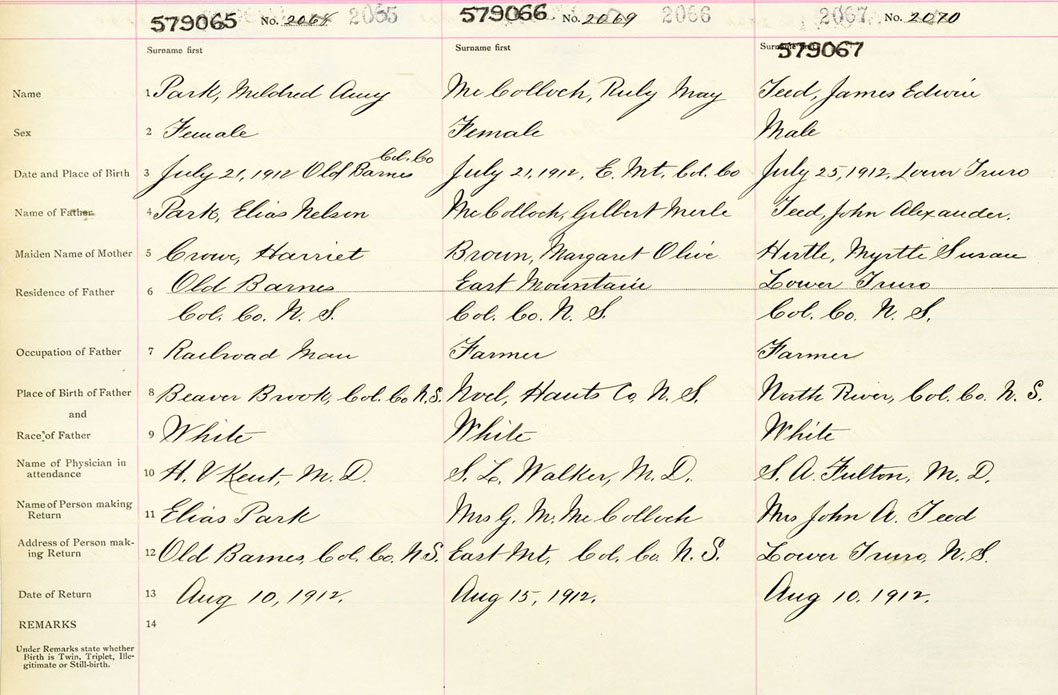 579065 No. 2068 2065 579066 No. 2069 2066 2067 No. 2070
Surname first Surname first Surname first 579067
Name 1 Park, Mildred Amy McColloch, Ruly May Teed, James Edwin
Sex 2 Female Female Male
Col. Co
Date and Place of Birth 3 July 21, 1912 Old Barnes July 21, 1912, E. Mt. Col. Co July 25, 1912, Lower Truro
Name of Father 4 Park, Elias Nelson McColloch, Gilbert Merle Teed, John Alexander.
Maiden Name of Mother 5 Crowe, Harriet Brown, Margaret Olive Hirtle, Myrtle Susan
Residence of Father 6 Old Barnes East Mountain Lower Truro
Col. Co. N. S. Col. Co. N. S. Col. Co. N. S.
Occupation of Father 7 Railroad Man Farmer Farmer
Place of Birth of Father 8 Beaver Brook, Col. Co N.S. Noel, Hants Co, N. S. North River, Col. Co. N. S.
and
Race of Father 9 White White White
Name of Physician in
attendance 10 H. V Kent, M. D. S. L. Walker, M. D. S. A. Fulton, M. D.
Name of Person making
Return 11 Elias Park Mrs G. M. McColloch Mrs John A. Teed
Address of Person mak-
ing Return 12 Old Barnes, Col. Co. N.S. East Mt, Col. Co. N. S. Lower Truro, N. S.
Date of Return 13 Aug 10, 1912. Aug 15, 1912. Aug 10. 1912.
REMARKS 14
Under Remarks state whether
Birth is Twin, Triplet, Ille-
gitimate or Still-birth.